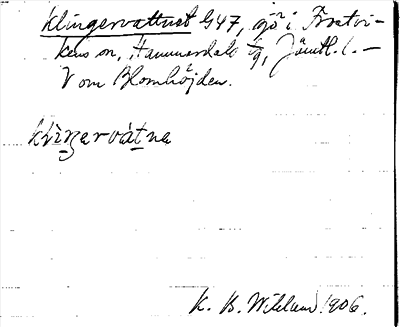 Klingervattnet G47, sjö i Frostvi-
kens sn, Hammerdals tg, Jämtl. l. –
V om Blomhöjden.
kliŋərvátna
K. B. Wiklund 1906.